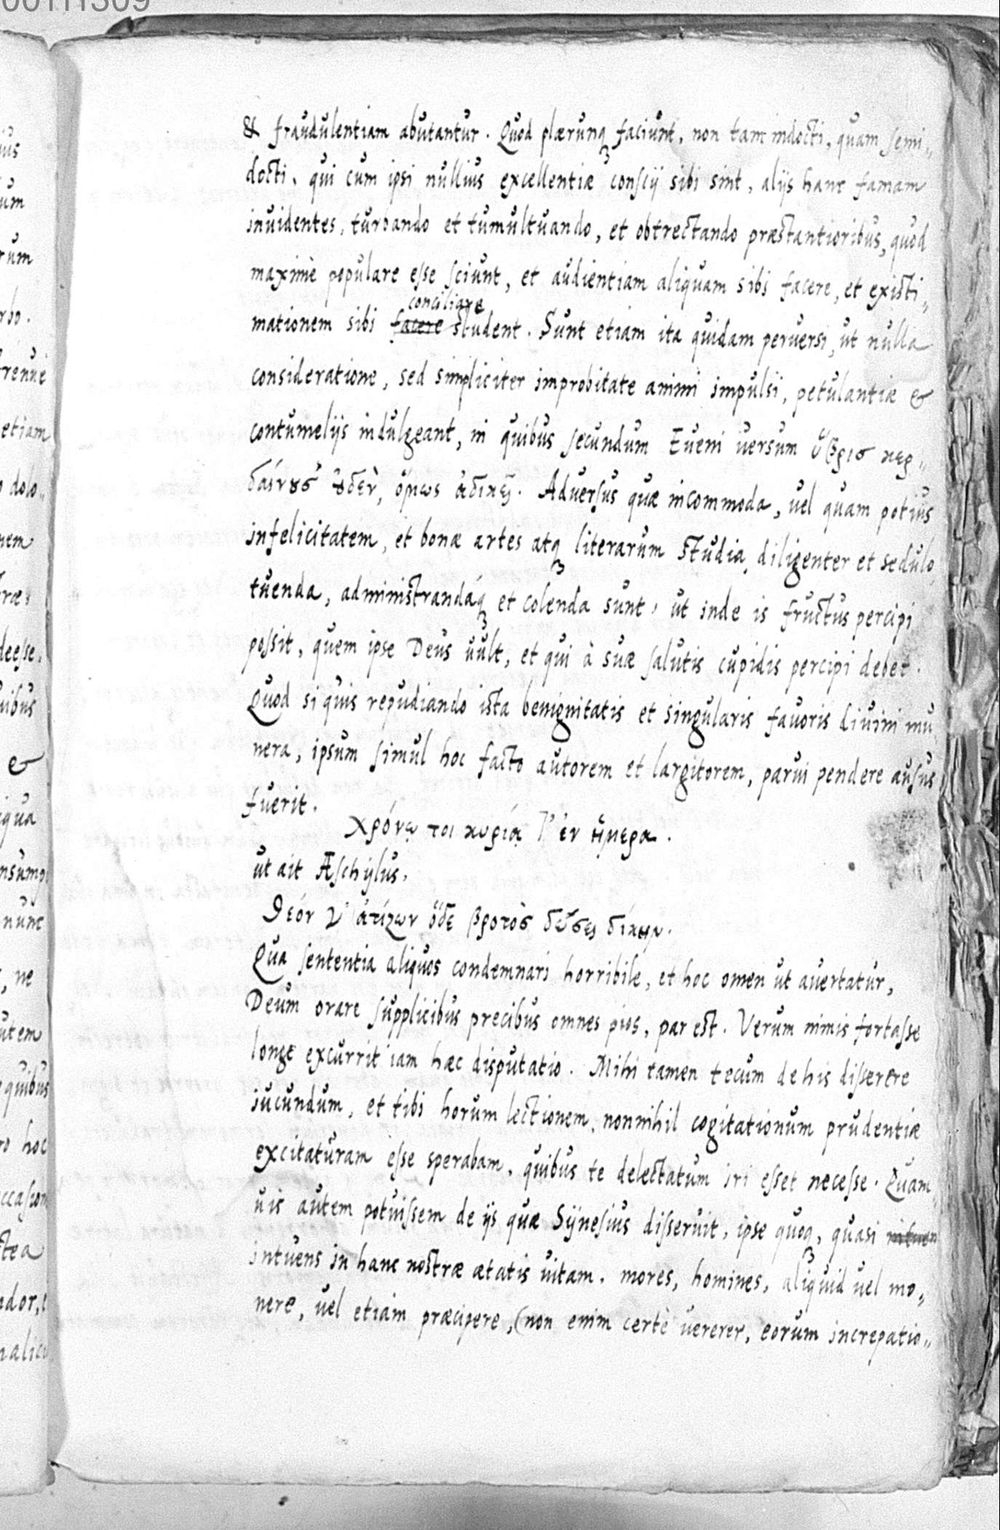 00111309
& fraudulentiam abutantur. Quod plærunq; faciunt, non tam indocti, quam semi„
docti, qui cum ipsi nullius excellentiæ conscij sibi sint, alijs hanc famam
inuidentes, turbando et tumultuando, et obtrectando præstantioribus, quod
maximè populare esse sciunt, et audientiam aliquam sibi facere, et existi„
conciliare
mationem sibi facere student. Sunt etiam ita quidam peruersi, ut nulla
consideratione, sed simpliciter improbitate animi impulsi, petulantiæ &
contumelijs indulgeant, in quibus secundum Eueni uersum ὕβρισ κερ„
δαίνουσ' οὐδὲν, ὅμως ἀδικεῖ. Aduersus quæ incommoda, uel quam potius
infelicitatem, et bonæ artes atq; literarum studia, diligenter et sedulo
tuenda, administrandaq; et colenda sunt, ut inde is fructus percipi
possit, quem ipse Deus uult, et qui à suæ salutis cupidis percipi debet.
Quod si quis repudiando ista benignitatis et singularis fauoris diuini mu
nera, ipsum simul hoc facto autorem et largitorem, parui pendere ausus
fuerit.
Χρόνῳ τοι κυρίᾳ τ' ἐν ἡμερᾳ.
ut ait Æschylus,
Θεόν γ' ἀτίζων ὅδε βροτὸς δώσει δίκην.
Qua sententia aliquos condemnari horribile, et hoc omen ut auertatur,
Deum orare supplicibus precibus omnes pios, par est. Verum nimis fortasse
longe excurrit iam hæc disputatio. Mihi tamen tecum de his disserere
iucundum, et tibi horum lectionem, nonnihil cogitationum prudentiæ
excitaturam esse sperabam, quibus te delectatum iri esset necesse. Quam
uis autem potuissem de ijs quæ Sÿnesius disseruit, ipse quoq, quasi intuen
intuens in hanc nostræ ætatis uitam, mores, homines, aliquid uel mo„
nere, uel etiam præcipere, (non enim certè uererer, eorum increpatio„